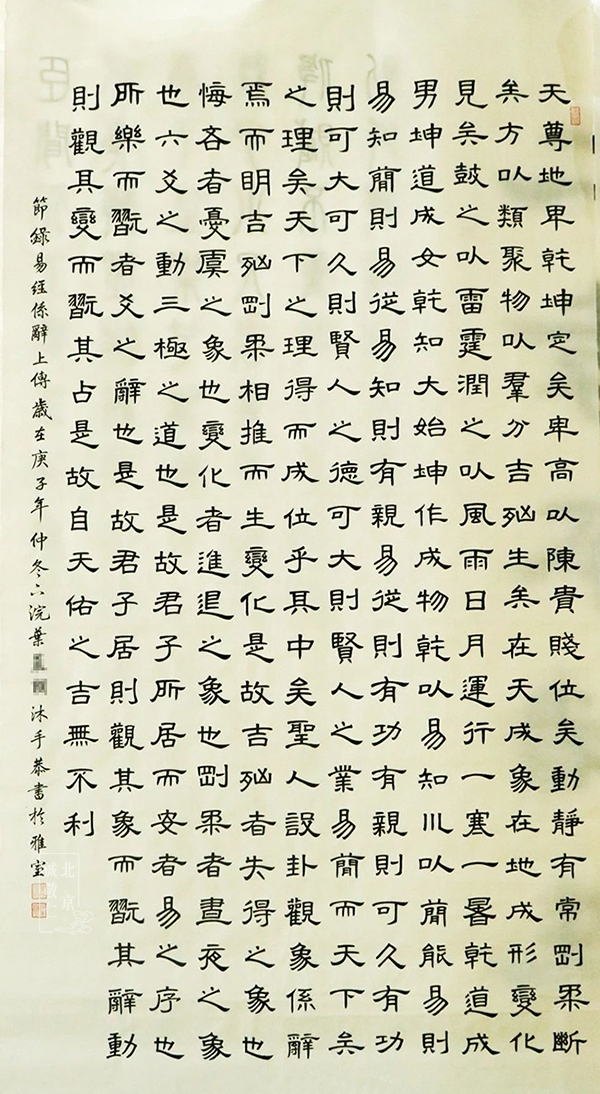 天尊地卑乾坤定矣卑高以陳貴賤位矣動靜有常剛柔斷
矣方以類聚物以羣分吉凶生矣在天成象在地成形變化
見矣鼓之以雷霆潤之以風雨日月運行一寒一暑乾道成
男坤道成女乾知大始坤作成物乾以易知川以簡能易則
易知簡則易從易知則有親易從則有功有親則可久有功
則可大可久則賢人之德可大則賢人之業易簡而天下矣
之理矣天下之理得而成位乎其中矣聖人設卦觀象係辭
焉而明吉凶剛柔相推而生變化是故吉凶者失得之象也
悔吝者憂虞之象也變化者進退之象也剛柔者晝夜之象
也六爻之動三極之道也是故君子所居而安者易之序也
所樂而翫者爻之辭也是故君子居則觀其象而翫其辭動
則觀其變而翫其占是故自天佑之吉無不利
節錄易經係辭上傳歲在庚子年仲冬浣葉沐手恭書於雅室
北京